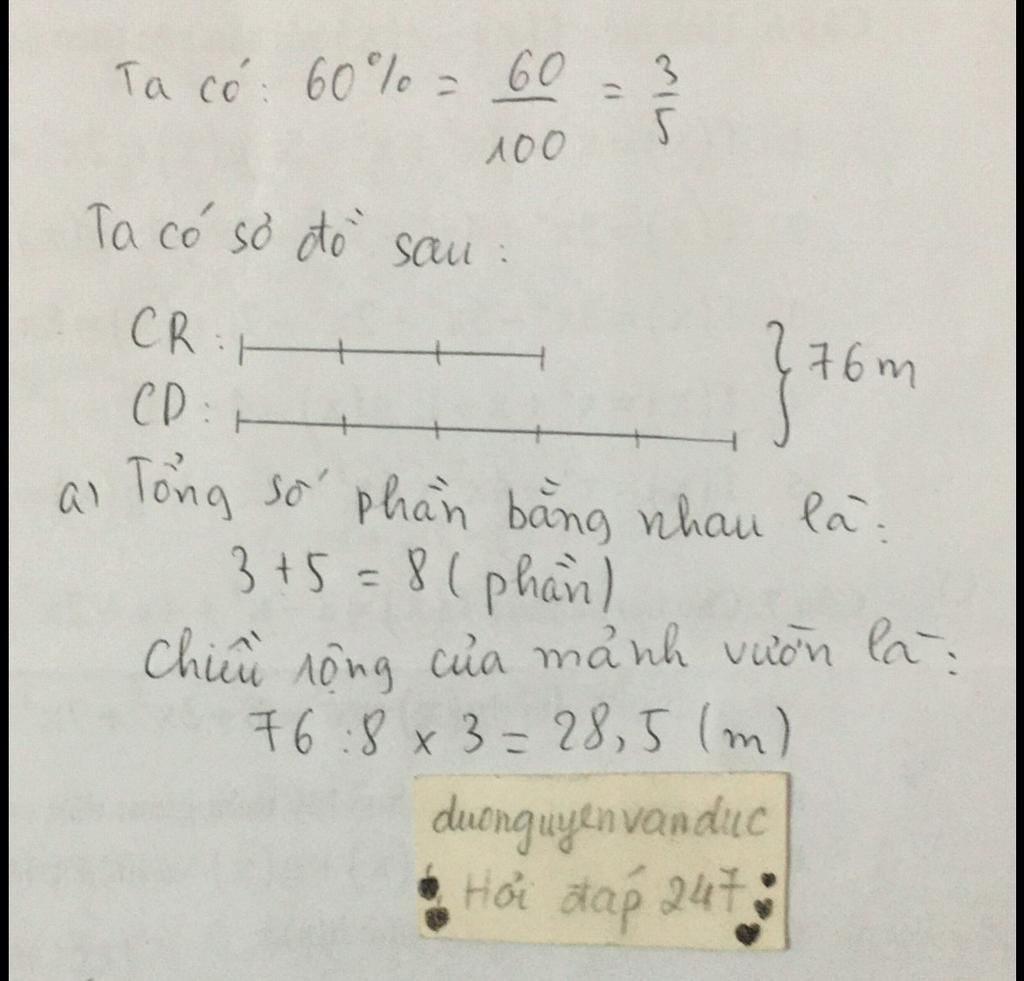 Ta có: 60% = 60/100 = 3/5
Ta có sơ đồ sau:
CR:
CD:
} 76m
a) Tổng số phần bằng nhau là:
3 + 5 = 8 (phần)
Chiều rộng của mảnh vườn là:
76 : 8 x 3 = 28,5 (m)
duonguyenvanduc
Hỏi đáp 247